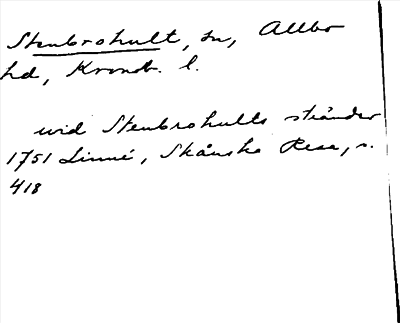 Stenbrohult, sn, Allbo
hd, Kronob. l.
wid Stenbrohults stränder
1751 Linné, Skånska Resa, s.
418